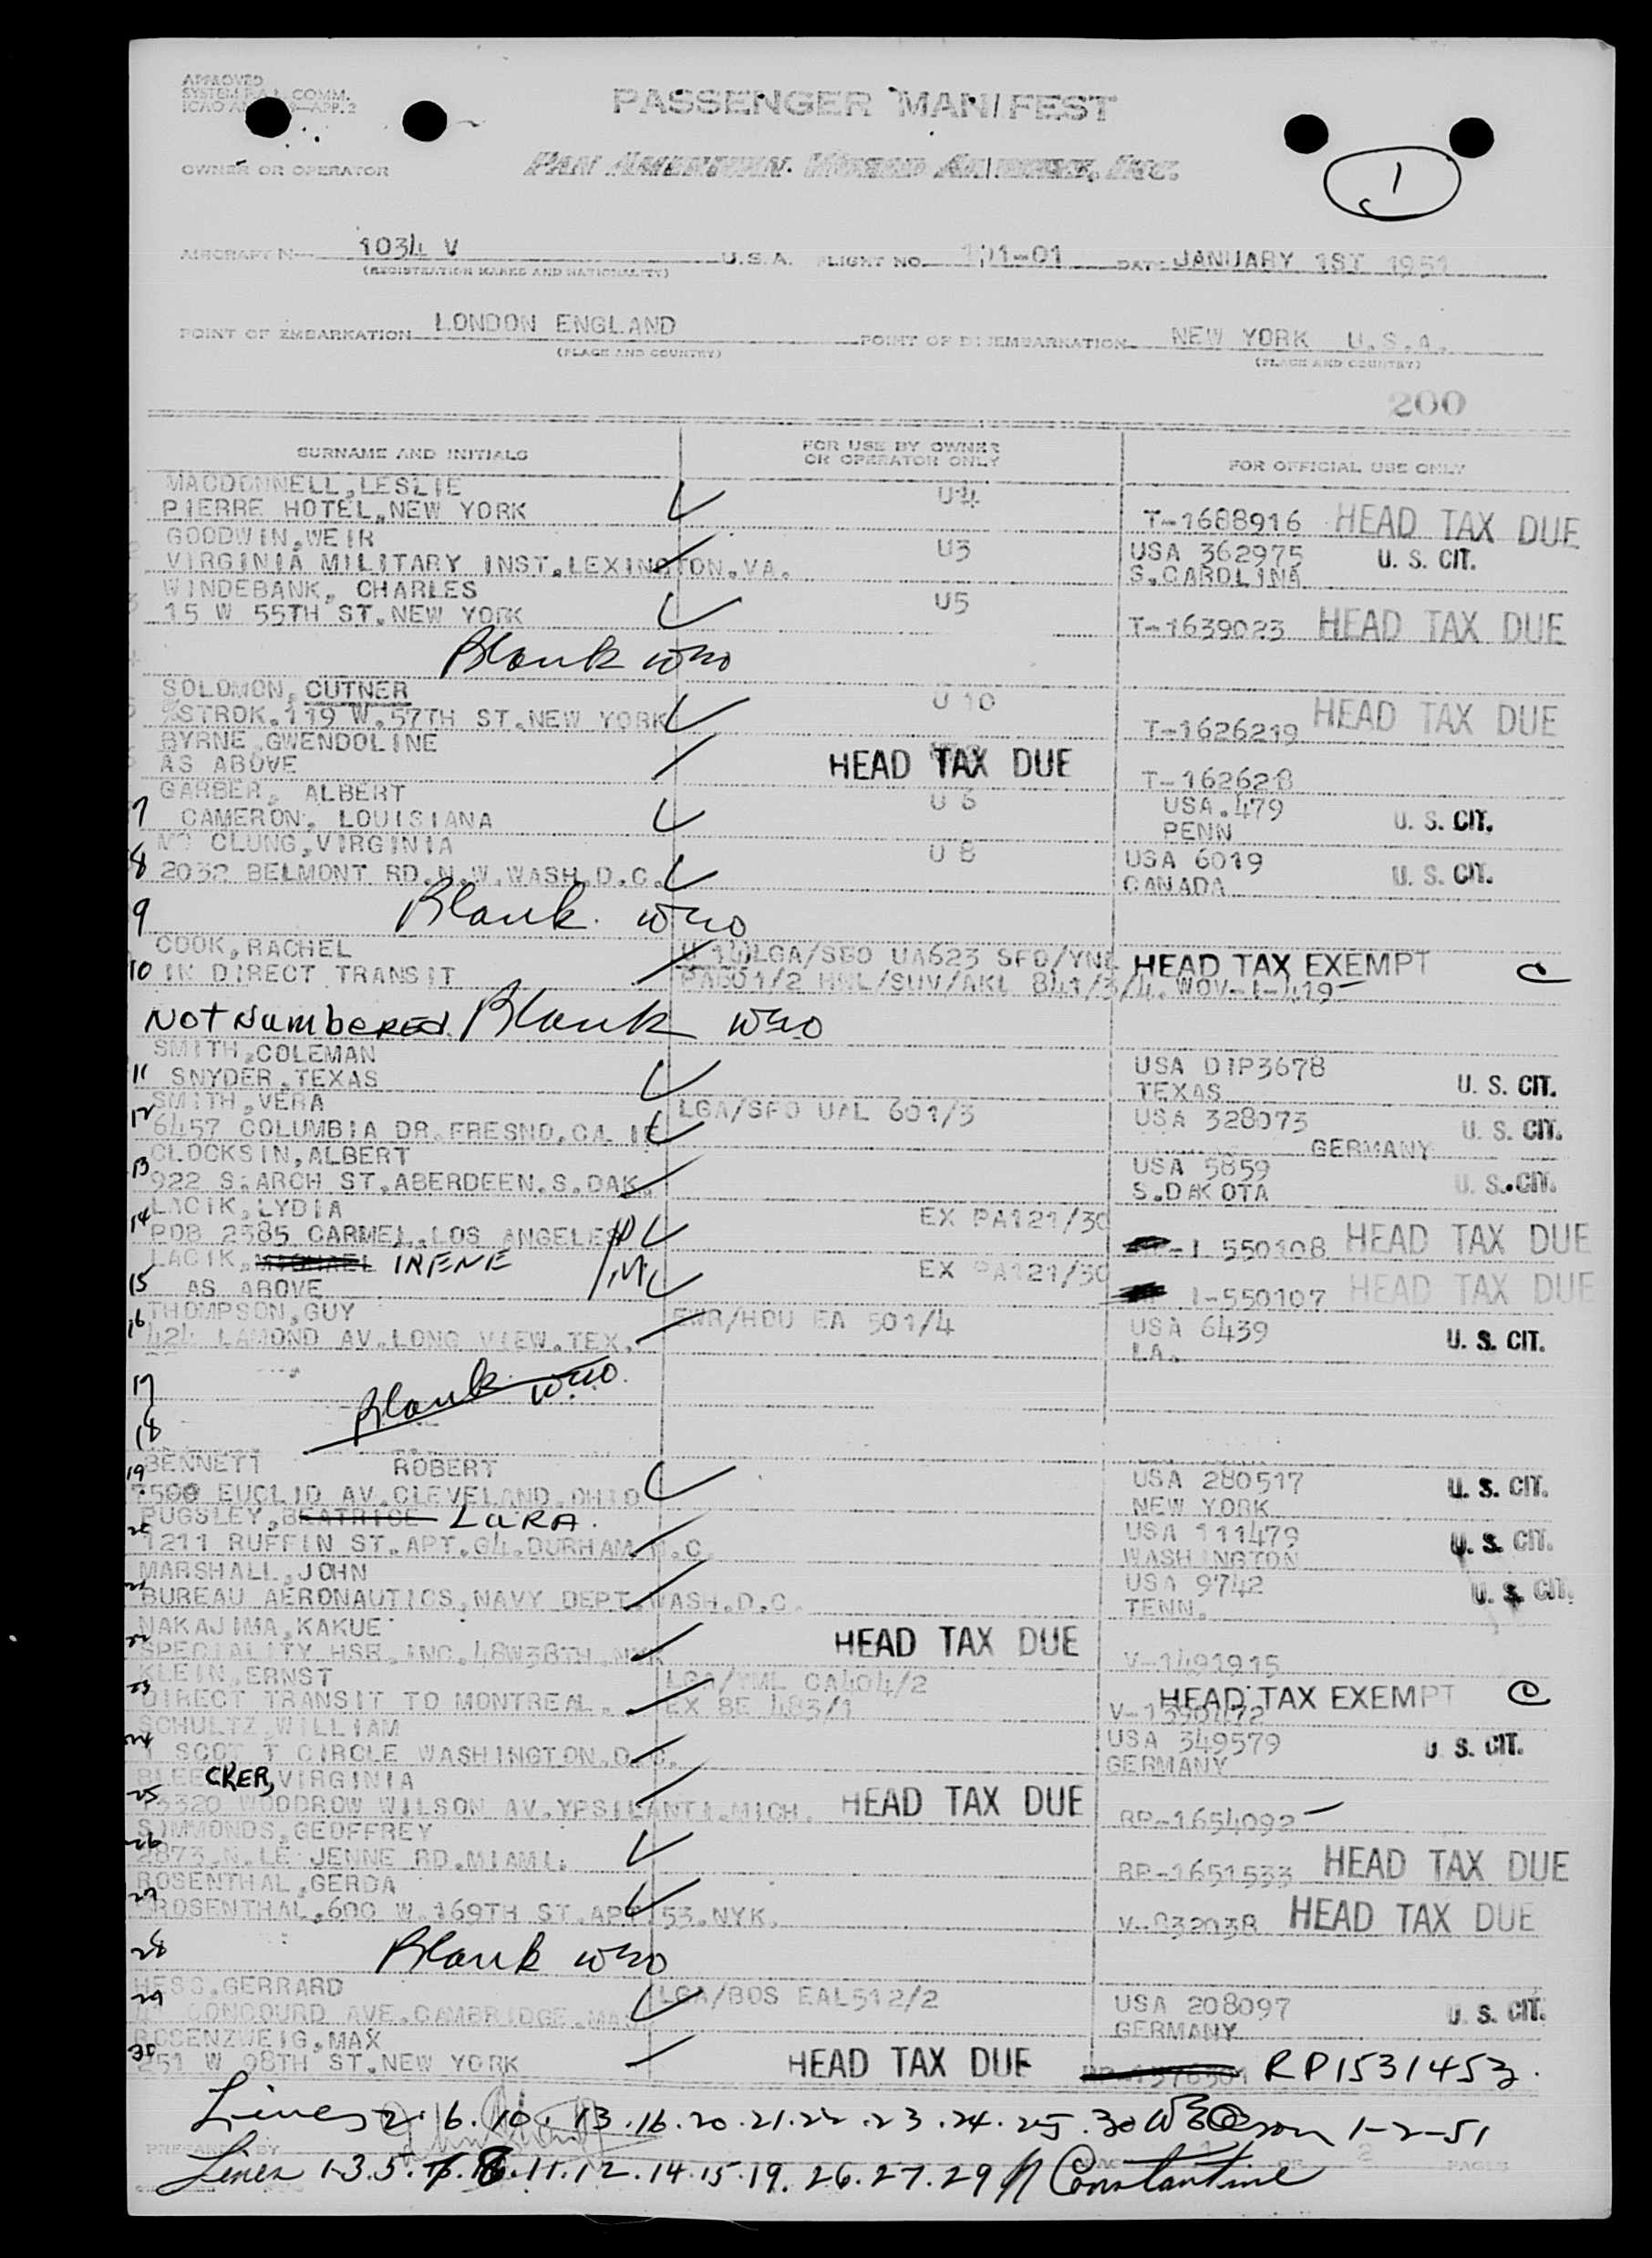 APPROVED
SYSTEM P.A.L. COMM.
ICAO —APP. 2
PASSENGER MANIFEST
OWNER OR OPERATOR PAN AMERICAN WORLD AIRWAYS, INC.
1
AIRCRAFT N— 1034 V U.S.A. FLIGHT NO. 101-01 DATE JANUARY 1ST 1951
(REGISTRATION MARKS AND NATIONALITY)
POINT OF EMBARKATION LONDON ENGLAND POINT OF DISEMBARKATION NEW YORK U.S.A.
(PLACE AND COUNTRY) (PLACE AND COUNTRY)
200
SURNAME AND INITIALS FOR USE BY OWNER OR OPERATOR ONLY FOR OFFICIAL USE ONLY
1 MACDONNELL,LESLIE U4
PIERRE HOTEL,NEW YORK T-1688916 HEAD TAX DUE
2 GOODWIN,WEIR U3 USA 362975 U. S. CIT.
VIRGINIA MILITARY INST.LEXINGTON.VA. S.CAROLINA
3 WINDEBANK, CHARLES U5
15 W 55TH ST.NEW YORK T-1639023 HEAD TAX DUE
4 Blank
5 SOLOMON, CUTNER U 10
%STROK.119 W.57TH ST.NEW YORK T-1626219 HEAD TAX DUE
6 BYRNE,GWENDOLINE HEAD TAX DUE
AS ABOVE T-162628
7 GARBER, ALBERT U 6 USA.479 U. S. CIT.
CAMERON, LOUISIANA PENN
8 MC CLUNG,VIRGINIA U 8 USA 6019 U. S. CIT.
2032 BELMONT RD.N.W.WASH.D.C. CANADA
9 Blank.
COOK,RACHEL LGA/SFO UA623 SFO/ HEAD TAX EXEMPT C
10 IN DIRECT TRANSIT PA801/2 HNL/SUV/AKL 841/3/4. WOV-I-419
Not Numbered Blank
SMITH,COLEMAN USA DIP3678
11 SNYDER,TEXAS TEXAS U. S. CIT.
12 SMITH,VERA LGA/SFO UAL 601/3 USA 328073 U. S. CIT.
6457 COLUMBIA DR.FRESNO.CA GERMANY
13 CLOCKSIN,ALBERT USA 5859
922 S.ARCH ST.ABERDEEN.S.DAK. S.DAKOTA U. S. CIT.
14 LACIK,LYDIA EX PA121/30
POB 2385 CARMEL.LOS ANGELES I 550108 HEAD TAX DUE
LACIK, MICHAEL IRENE EX PA121/30
15 AS ABOVE I-550107 HEAD TAX DUE
16 THOMPSON,GUY EWR/HOU EA 501/4 USA 6439 U. S. CIT.
424 LAMOND AV.LONG VIEW.TEX. LA.
17
18 Blank
19 BENNETT ROBERT USA 280517 U. S. CIT.
7500 EUCLID AV.CLEVELAND.OHIO NEW YORK
20 PUGSLEY,BEATRICE LURA. USA 111479 U. S. CIT.
1211 RUFFIN ST.APT.G4.DURHAM.N.C. WASHINGTON
21 MARSHALL,JOHN USA 9742 U. S. CIT.
BUREAU AERONAUTICS,NAVY DEPT.WASH.D.C. TENN.
22 NAKAJIMA,KAKUE HEAD TAX DUE
SPECIALITY HSE.INC.48W38TH. V-1491915
23 KLEIN,ERNST LGA/YML CA404/2 HEAD TAX EXEMPT C
DIRECT TRANSIT TO MONTREAL. EX BE 483/1 V-1390472
24 SCHULTZ,WILLIAM USA 349579 U. S. CIT.
1 SCOTT CIRCLE WASHINGTON.D.C. GERMANY
25 BLEECKER,VIRGINIA HEAD TAX DUE
WOODROW WILSON AV.YPSILANTI.MICH. RP-1654092
26 SIMMONDS,GEOFFREY
2873.N.LE JENNE RD.MIAMI. RP-1651533 HEAD TAX DUE
27 ROSENTHAL,GERDA
ROSENTHAL,600 W.169TH ST.APT.53.NYK. V-832038 HEAD TAX DUE
28 Blank
29 HESS,GERRARD LGA/BOS EAL512/2 USA 208097 U. S. CIT.
CONCOURD AVE.CAMBRIDGE.MASS GERMANY
30 ROSENZWEIG,MAX HEAD TAX DUE RP1531453.
251 W 98TH ST.NEW YORK
Lines 2.6.10.13.16.20.21.22.23.24.25.30 1-2-51
PREPARED BY PAGE 1 OF 2 PAGES
Lines 1-3.5.7.8.11.12.14.15.19.26.27.29 Constantine